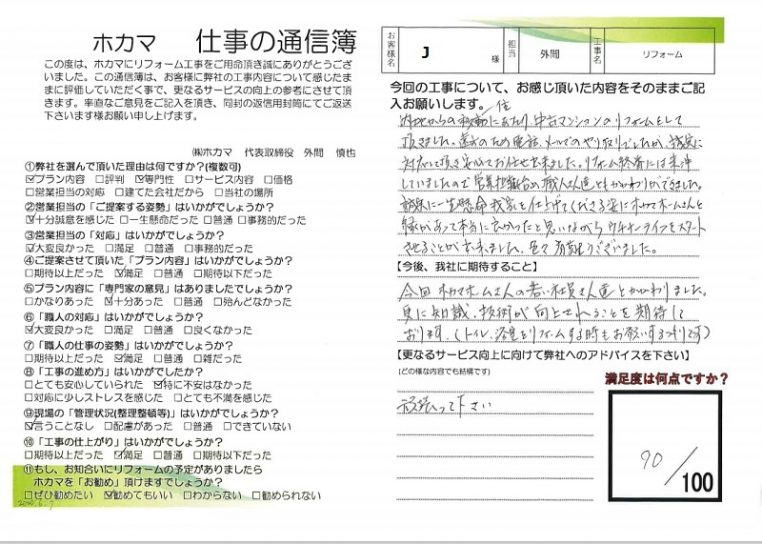 ホカマ 仕事の通信簿
この度は、ホカマにリフォーム工事をご用命頂き誠にありがとうござ
いました。この通信簿は、お客様に弊社の工事内容について感じたま
まに評価していただく事で、更なるサービスの向上の参考にさせて頂
きます。率直なご意見をご記入を頂き、同封の返信用封筒にてご返送
下さいます様お願い申し上げます。
㈱ホカマ 代表取締役 外間 慎也
①弊社を選んで頂いた理由は何ですか?(複数可)
☑プラン内容 □評判 ☑専門性 □サービス内容 □価格
□営業担当の対応 □建てた会社だから □当社の場所
②営業担当の「ご提案する姿勢」はいかがでしょうか?
☑十分誠意を感じた □一生懸命だった □普通 □事務的だった
③営業担当の「対応」はいかがでしょうか?
☑大変良かった □満足 □普通 □事務的だった
④ご提案させて頂いた「プラン内容」はいかがでしょうか?
□期待以上だった ☑満足 □普通 □期待以下だった
⑤プラン内容に「専門家の意見」はありましたでしょうか?
□かなりあった ☑十分あった □普通 □殆んどなかった
⑥「職人の対応」はいかがでしょうか?
☑大変良かった □満足 □普通 □良くなかった
⑦「職人の仕事の姿勢」はいかがでしょうか?
□期待以上だった ☑満足 □普通 □雑だった
⑧「工事の進め方」はいかがでしたか?
□とても安心していられた ☑特に不安はなかった
□対応に少しストレスを感じた □とても不満を感じた
⑨現場の「管理状況(整理整頓等)」はいかがでしょうか?
☑言うことなし □配慮があった □普通 □できていない
⑩「工事の仕上がり」はいかがでしょうか?
□期待以上だった ☑満足 □普通 □期待以下だった
⑪もし、お知合いにリフォームの予定がありましたら
ホカマを「お勧め」頂けますでしょうか?
□ぜひ勧めたい ☑勧めてもいい □わからない □勧められない
お客様名 J 様 担当 外間 工事名 リフォーム
今回の工事について、お感じ頂いた内容をそのままご記
入お願いします。
中古マンションのリフォームをして
頂きました。遠方のため電話、メールでのやり取りでしたが、誠実に
対応して頂き安心してお任せ出来ました。リフォーム終者には来沖
していましたので営業担当の職人さん達ともかかわりができました。
誠実に一生懸命我家を仕上げてくださる姿にホカマホームさんと
縁があって本当に良かったと思いながらウチナーライフをスタート
させることが出来ました。色々有難うございました。
【今後、我社に期待すること】
今回ホカマホームさんの若い社員さん達とかかわりました。
更に知識、技術が向上されることを期待して
おります。(トイレ、浴室をリフォームする時もお願いするつもりです)
【更なるサービス向上に向けて弊社へのアドバイスを下さい】
(どの様な内容でも結構です)
頑張って下さい
満足度は何点ですか?
90/100